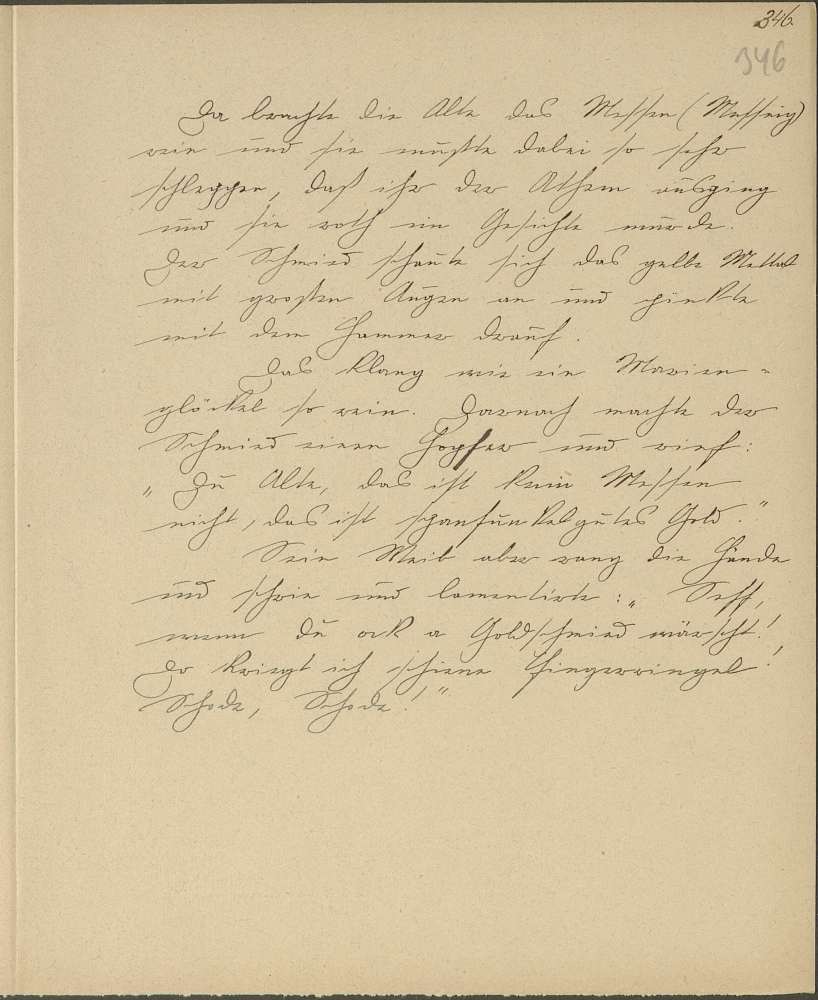 346.
346
Da brachte die Alte das Messen (Messing)
rein und sie mußte dabei so sehr
schleppen, daß ihr der Athem ausging
und sie roth im Gesichte wurde.
Der Schmied schaute sich das gelbe Mettal
mit großen Augen an und pinkte
mit dem Hammer drauf.
Das klang wie ein Marien-
glöckel so rein. Darnach machte der
Schmied einen Hopser und rief:
„Du Alte, das ist kein Messen
nicht, das ist spanfunkelgutes Gold."
Sein Weib aber rang die Hände
und schrie und lamentirte: „Seff,
wenn du ock a Goldschmied wärscht!
Do kriegt ich schiene Fingerringel!
Schode, Schode!"